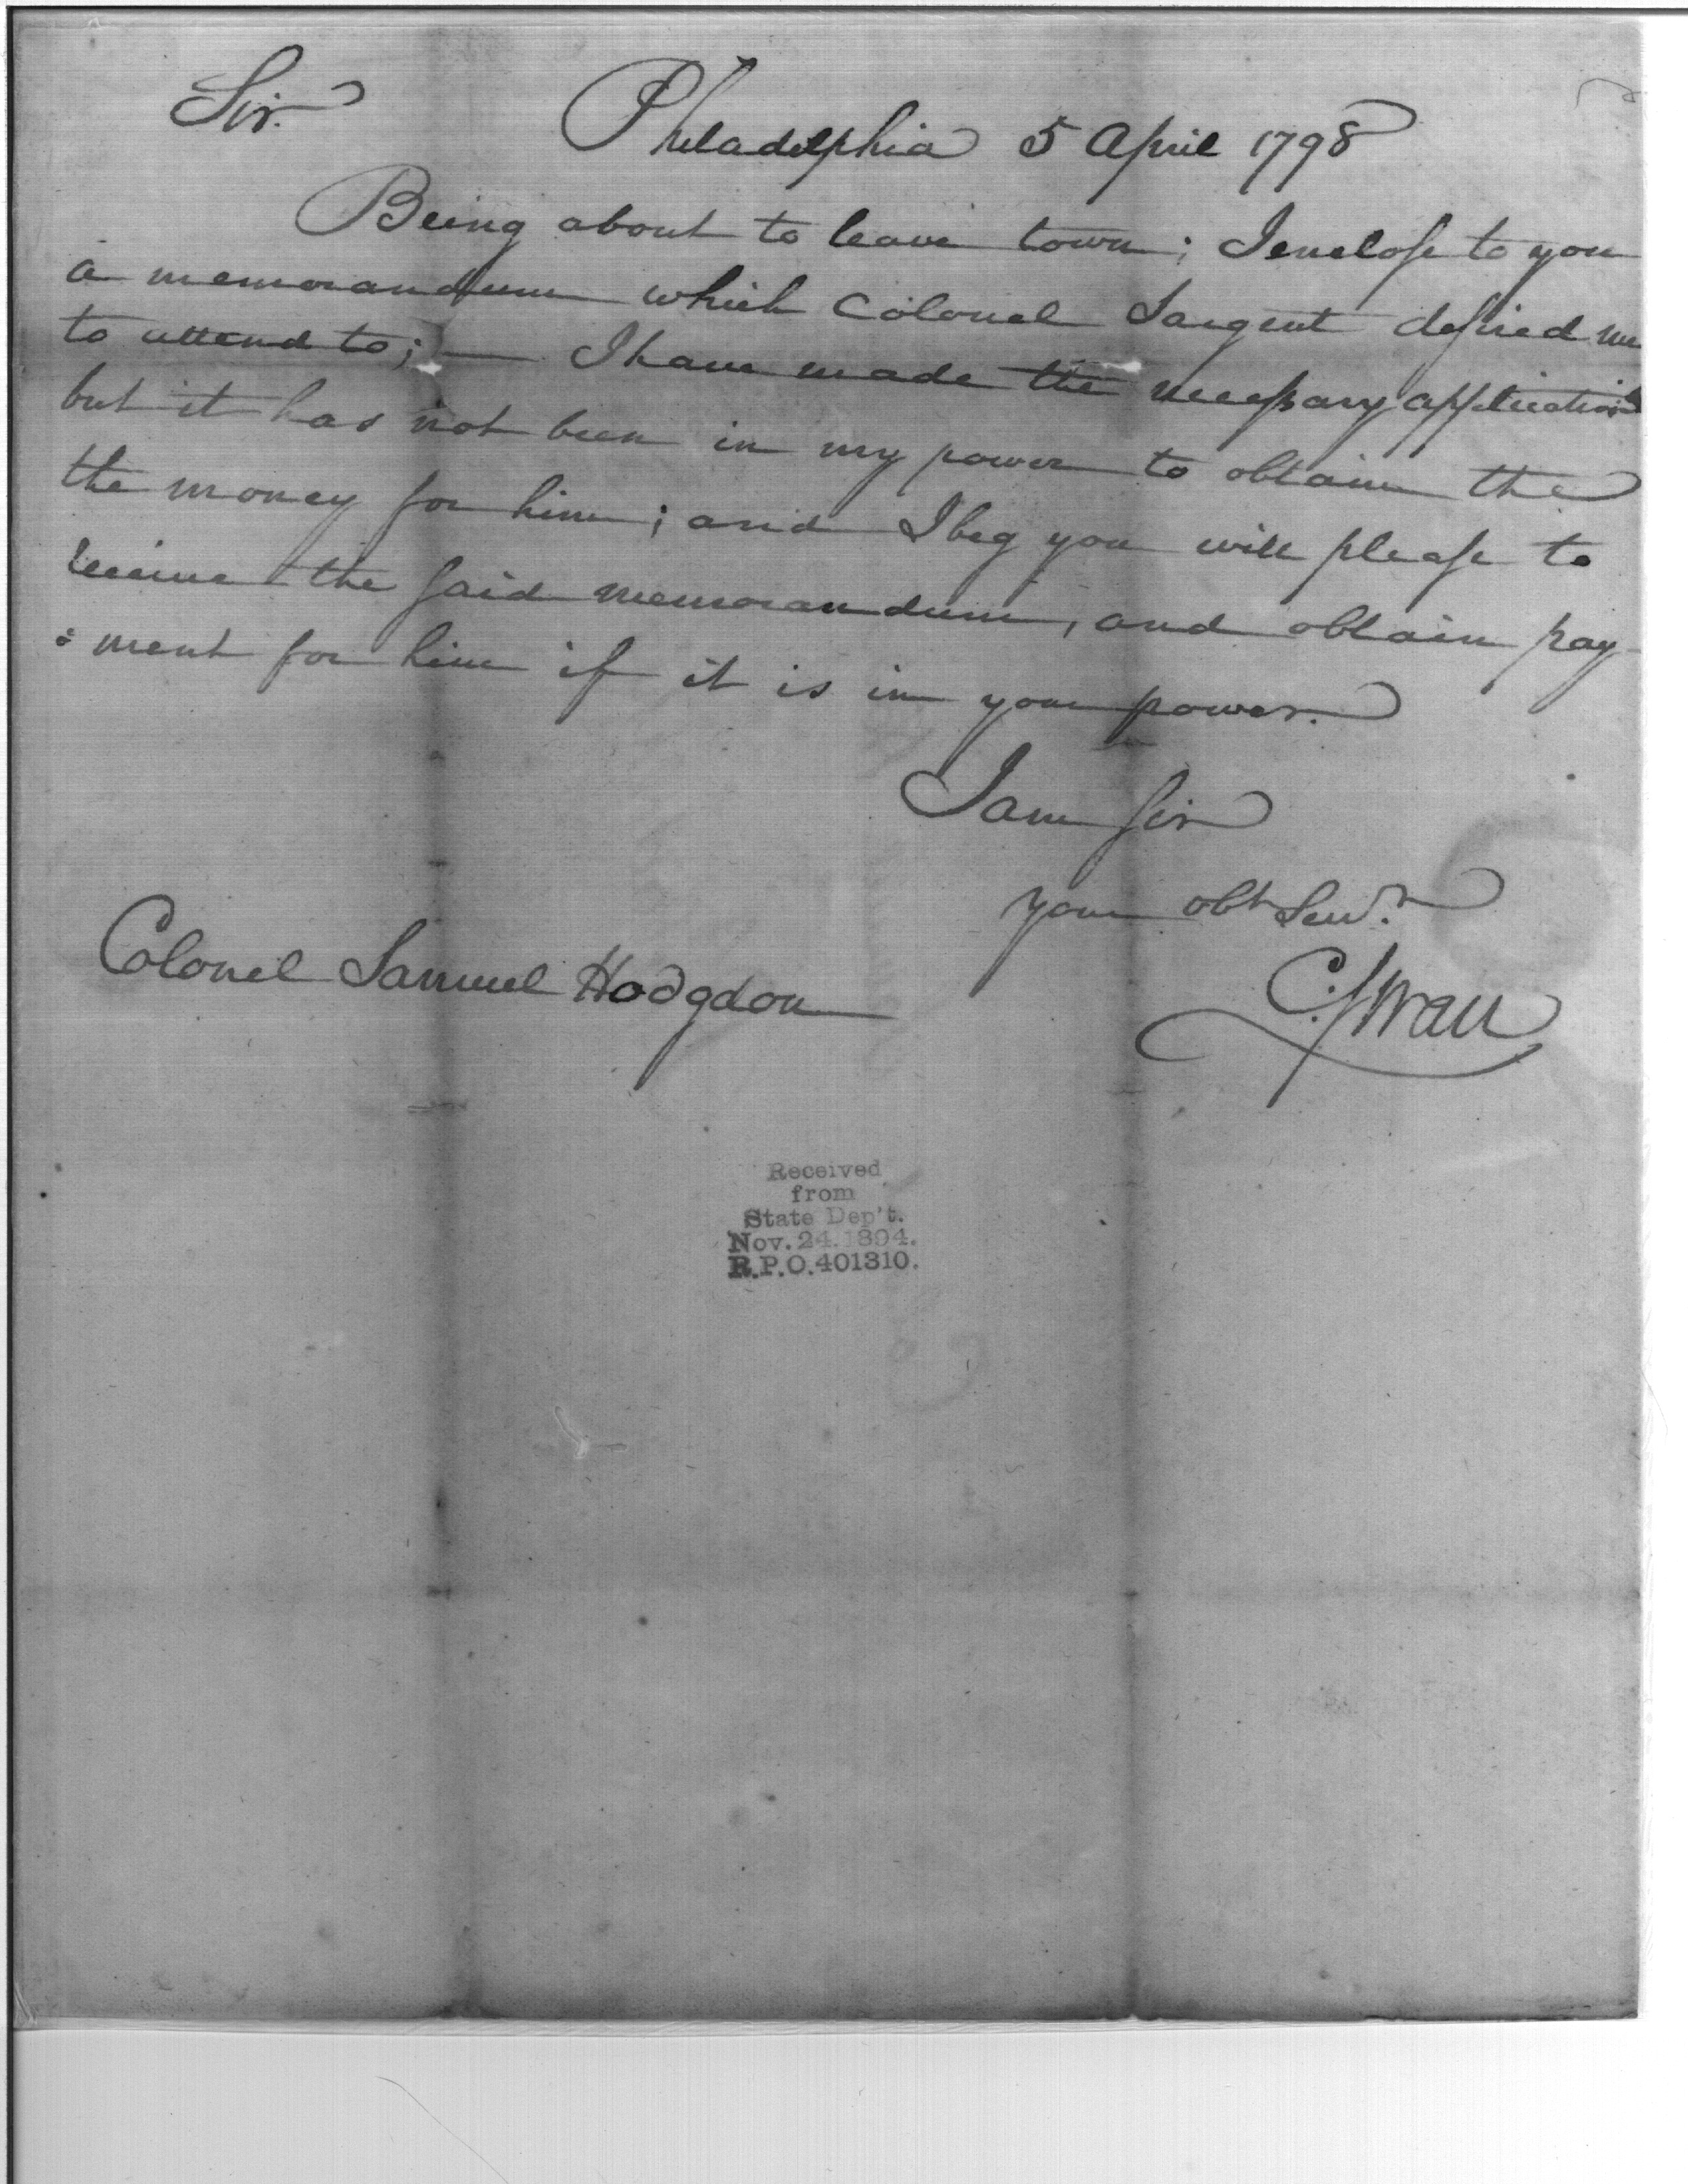 Sir.
Philadelphia 5 April 1798
Being about to leave town; I enclose to you
a memorandum which Colonel Sargent desired me
to attend to; — I have made the necessary applications
but it has not been in my power to obtain the
the money for him; and I beg you will please to
receive the said memorandum, and obtain pay-
:ment for him if it is in your power.
I am sir
your obt Servt.
C. Swan
Colonel Samuel Hodgdon
Received
from
State Dep't.
Nov. 24. 1894.
R.P.O. 401310.